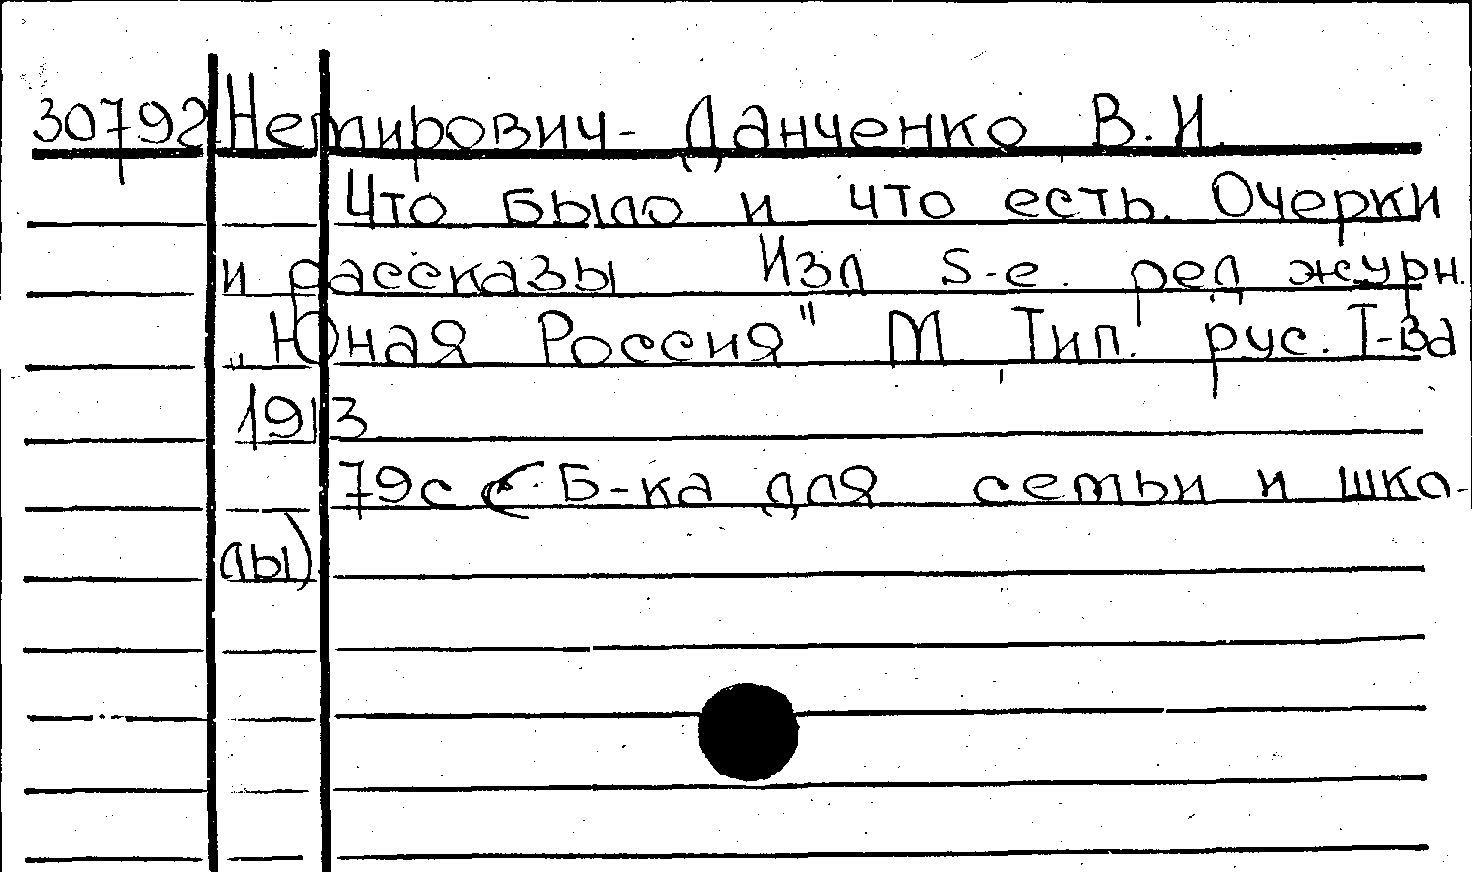 30792 Немирович-Данченко В.И.
Что было и что есть. Очерки
и рассказы Изд 5-е. ред журн.
„Юная Россия" М. Тип. рус. Т-ва
1913
79с (Б-ка для семьи и шко-
лы)